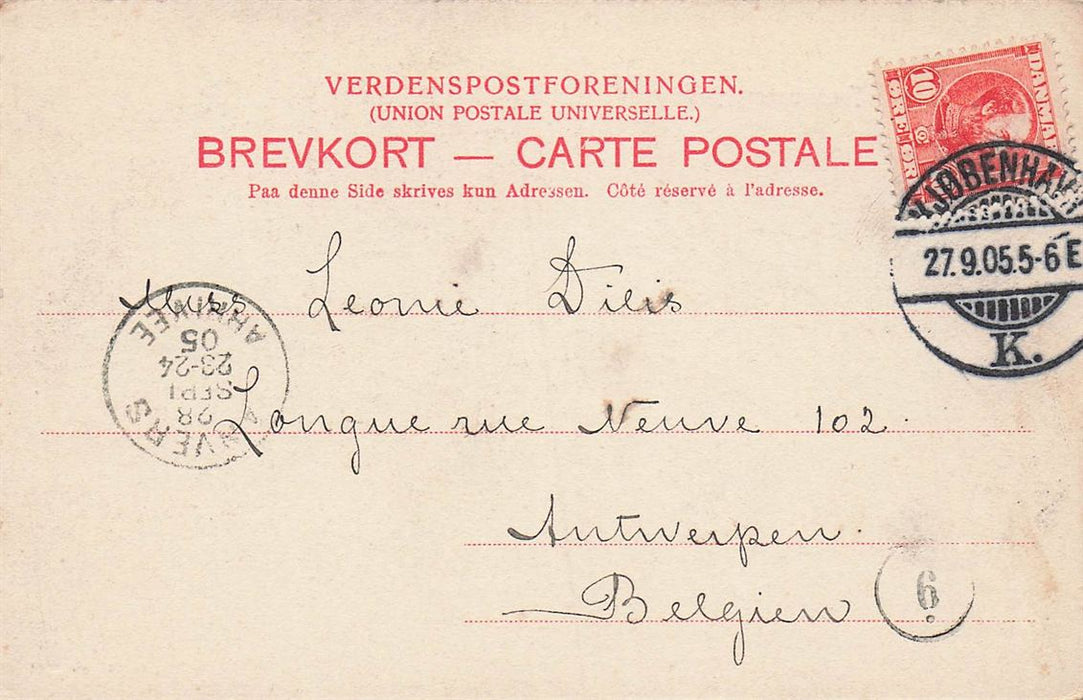 VERDENSPOSTFORENINGEN.
(UNION POSTALE UNIVERSELLE.)
BREVKORT — CARTE POSTALE
Paa denne Side skrives kun Adressen. Côté réservé à l'adresse.
10
KJØBENHAVN
27.9.05.5-6E
K.
Miss Leonie Dilis
ANVERS
28
SEPT
23-24
05
ARRIVEE
Longue rue Neuve 102.
Antwerpen.
Belgien
6